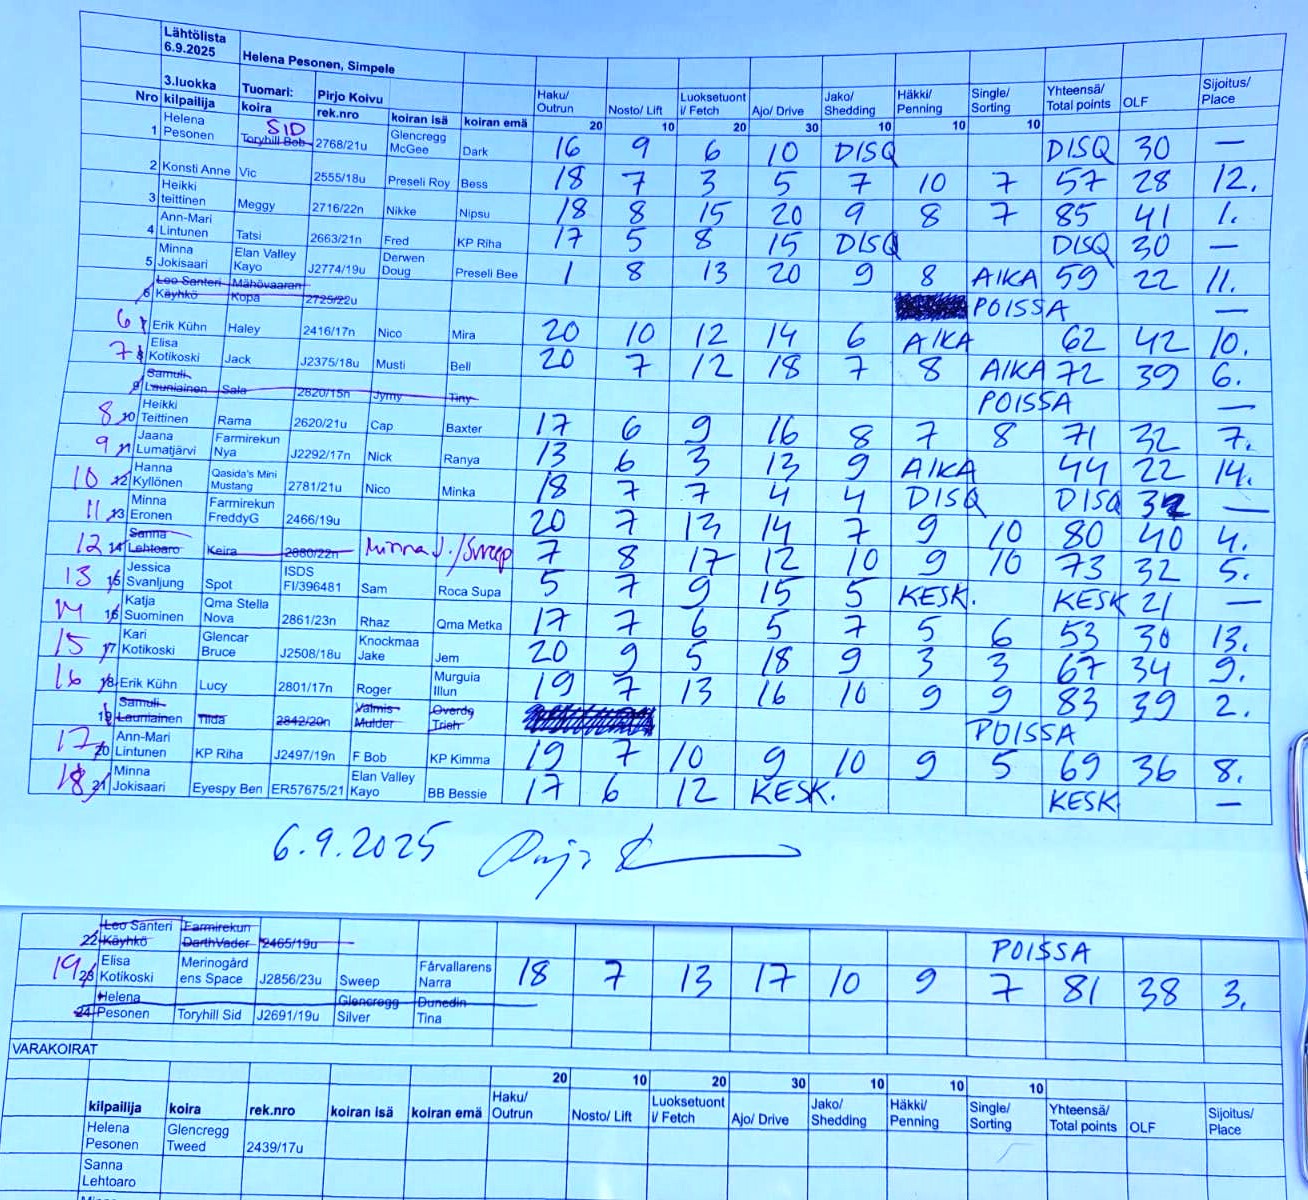 Lähtölista 6.9.2025 Helena Pesonen, Simpele
3.luokka Tuomari: Pirjo Koivu
Nro kilpailija koira rek.nro koiran isä koiran emä Haku/ Outrun 20 Nosto/ Lift 10 Luoksetuont i/ Fetch 20 Ajo/ Drive 30 Jako/ Shedding 10 Häkki/ Penning 10 Single/ Sorting 10 Yhteensä/ Total points OLF Sijoitus/ Place
1 Helena Pesonen SID Toryhill Bob 2768/21u Glencregg McGee Dark 16 9 6 10 DISQ DISQ 30 —
2 Konsti Anne Vic 2555/18u Preseli Roy Bess 18 7 3 5 7 10 7 57 28 12.
3 Heikki teittinen Meggy 2716/22n Nikke Nipsu 18 8 15 20 9 8 7 85 41 1.
4 Ann-Mari Lintunen Tatsi 2663/21n Fred KP Riha 17 5 8 15 DISQ DISQ 30 —
5 Minna Jokisaari Elan Valley Kayo J2774/19u Derwen Doug Preseli Bee 1 8 13 20 9 8 AIKA 59 22 11.
6 Leo Santeri Käyhkö Mähövaaran Kopa 2725/22u POISSA —
6 Erik Kühn Haley 2416/17n Nico Mira 20 10 12 14 6 AIKA 62 42 10.
7 8 Elisa Kotikoski Jack J2375/18u Musti Bell 20 7 12 18 7 8 AIKA 72 39 6.
9 Samuli Launiainen Sala 2820/15n Jymy Tiny POISSA —
8 10 Heikki Teittinen Rama 2620/21u Cap Baxter 17 6 9 16 8 7 8 71 32 7.
9 11 Jaana Lumatjärvi Farmirekun Nya J2292/17n Nick Ranya 13 6 3 13 9 AIKA 44 22 14.
10 12 Hanna Kyllönen Qasida's Mini Mustang 2781/21u Nico Minka 18 7 7 4 4 DISQ DISQ 32 —
11 13 Minna Eronen Farmirekun FreddyG 2466/19u 20 7 13 14 7 9 10 80 40 4.
12 14 Sanna Lehtoaro Keira 2880/22n Minna J./Sweep 7 8 17 12 10 9 10 73 32 5.
13 15 Jessica Svanljung Spot ISDS FI/396481 Sam Roca Supa 5 7 9 15 5 KESK. KESK 21 —
14 16 Katja Suominen Qma Stella Nova 2861/23n Rhaz Qma Metka 17 7 6 5 7 5 6 53 30 13.
15 17 Kari Kotikoski Glencar Bruce J2508/18u Knockmaa Jake Jem 20 9 5 18 9 3 3 67 34 9.
16 18 Erik Kühn Lucy 2801/17n Roger Murguia Illun 19 7 13 16 10 9 9 83 39 2.
19 Samuli Launiainen Tilda 2842/20n Valmis Mulder Overdg Trish POISSA
17 20 Ann-Mari Lintunen KP Riha J2497/19n F Bob KP Kimma 19 7 10 9 10 9 5 69 36 8.
18 21 Minna Jokisaari Eyespy Ben ER57675/21 Elan Valley Kayo BB Bessie 17 6 12 KESK. KESK —
6.9.2025
22 Leo Santeri Käyhkö Farmirekun DarthVader 2465/19u POISSA
19 23 Elisa Kotikoski Merinogård ens Space J2856/23u Sweep Fårvallarens Narra 18 7 13 17 10 9 7 81 38 3.
24 Helena Pesonen Toryhill Sid J2691/19u Glencregg Silver Dunedin Tina
VARAKOIRAT
20 10 20 30 10 10 10
kilpailija koira rek.nro koiran isä koiran emä Haku/ Outrun Nosto/ Lift Luoksetuont i/ Fetch Ajo/ Drive Jako/ Shedding Häkki/ Penning Single/ Sorting Yhteensä/ Total points OLF Sijoitus/ Place
Helena Pesonen Glencregg Tweed 2439/17u
Sanna Lehtoaro